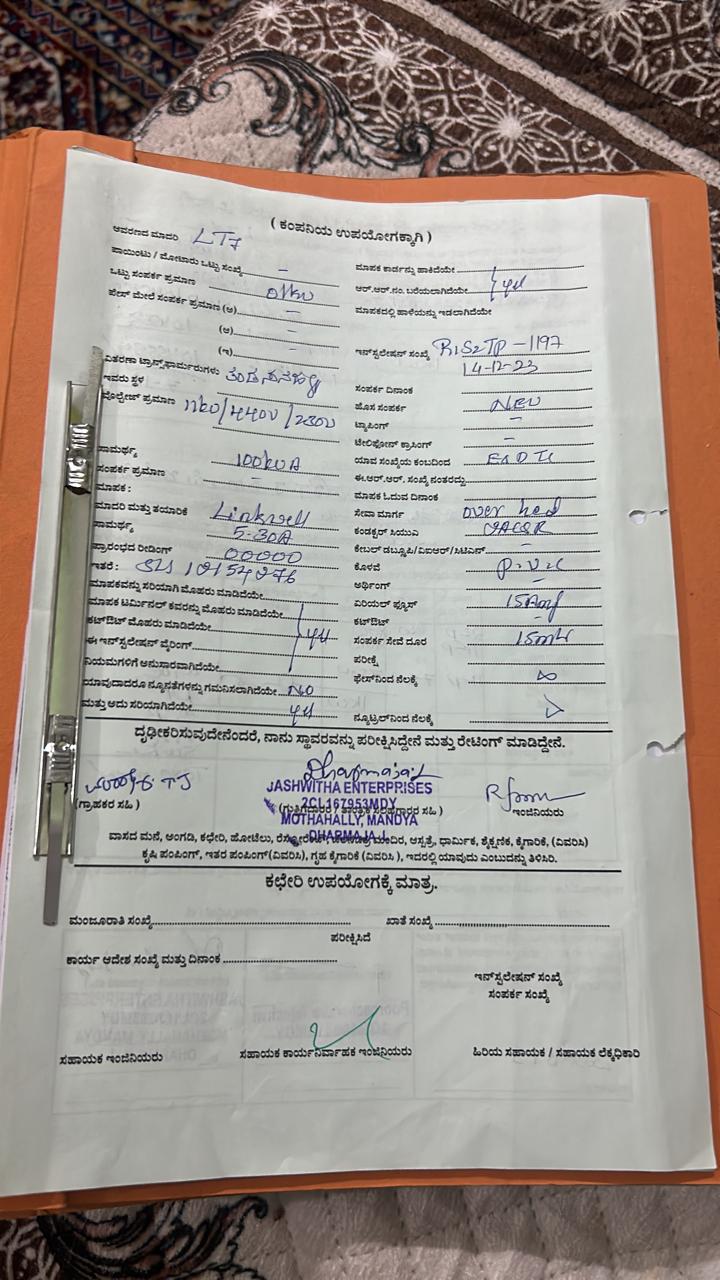 ( ಕಂಪನಿಯ ಉಪಯೋಗಕ್ಕಾಗಿ )
ಆವರಣದ ಮಾದರಿ LT7
ಪಾಯಿಂಟು / ಮೋಟಾರು ಒಟ್ಟು ಸಂಖ್ಯೆ -
ಒಟ್ಟು ಸಂಪರ್ಕ ಪ್ರಮಾಣ
ಫೇಸ್ ಮೇಲೆ ಸಂಪರ್ಕ ಪ್ರಮಾಣ (ಅ) -
(ಆ) -
(ಇ) -
ವಿತರಣಾ ಟ್ರಾನ್ಸ್‌ಫಾರ್ಮರುಗಳು
ಇವರು ಸ್ಥಳ
ವೋಲ್ಟೇಜ್ ಪ್ರಮಾಣ /440V /230V
ಸಾಮರ್ಥ್ಯ 100kVA
ಸಂಪರ್ಕ ಪ್ರಮಾಣ -
ಮಾಪಕ :
ಮಾದರಿ ಮತ್ತು ತಯಾರಿಕೆ Linkwell
ಸಾಮರ್ಥ್ಯ 5-30A
ಪ್ರಾರಂಭದ ರೀಡಿಂಗ್ 00000
ಇತರೆ :
ಮಾಪಕವನ್ನು ಸರಿಯಾಗಿ ಮೊಹರು ಮಾಡಿದೆಯೇ
ಮಾಪಕ ಟರ್ಮಿನಲ್ ಕವರನ್ನು ಮೊಹರು ಮಾಡಿದೆಯೇ
ಕಟ್‌ಔಟ್ ಮೊಹರು ಮಾಡಿದೆಯೇ
ಈ ಇನ್‌ಸ್ಟಲೇಷನ್ ವೈರಿಂಗ್
ನಿಯಮಗಳಿಗೆ ಅನುಸಾರವಾಗಿದೆಯೇ
ಯಾವುದಾದರೂ ನ್ಯೂನತೆಗಳನ್ನು ಗಮನಿಸಲಾಗಿದೆಯೇ NO
ಮತ್ತು ಅದು ಸರಿಯಾಗಿದೆಯೇ
ಮಾಪಕ ಕಾರ್ಡನ್ನು ಹಾಕಿದೆಯೇ
ಆರ್.ಆರ್.ನಂ. ಬರೆಯಲಾಗಿದೆಯೇ
ಮಾಪಕದಲ್ಲಿ ಹಾಳೆಯನ್ನು ಇಡಲಾಗಿದೆಯೇ
ಇನ್‌ಸ್ಟಲೇಷನ್ ಸಂಖ್ಯೆ RIS2TP-1197
14-12-23
ಸಂಪರ್ಕ ದಿನಾಂಕ
ಹೊಸ ಸಂಪರ್ಕ NEW
ಟ್ಯಾಪಿಂಗ್ -
ಟೆಲಿಫೋನ್ ಕ್ರಾಸಿಂಗ್ -
ಯಾವ ಸಂಖ್ಯೆಯ ಕಂಬದಿಂದ
ಈ.ಆರ್.ಆರ್. ಸಂಖ್ಯೆ ನಂತರದ್ದು
ಮಾಪಕ ಓದುವ ದಿನಾಂಕ
ಸೇವಾ ಮಾರ್ಗ over head
ಕಂಡಕ್ಟರ್ ಸಿಯುಎ
ಕೇಬಲ್ ಡಬ್ಲ್ಯೂಪಿ/ವಿಐಆರ್/ಸಿಟಿಎಸ್ -
ಕೊಳವೆ P.V.C
ಅರ್ಥಿಂಗ್ -
ಎರಿಯಲ್ ಫ್ಯೂಸ್ 15Amp
ಕಟ್‌ಔಟ್ -
ಸಂಪರ್ಕ ಸೇವೆ ದೂರ
ಪರೀಕ್ಷೆ
ಫೇಸ್‌ನಿಂದ ನೆಲಕ್ಕೆ ∞
ನ್ಯೂಟ್ರಲ್‌ನಿಂದ ನೆಲಕ್ಕೆ
ದೃಢೀಕರಿಸುವುದೇನೆಂದರೆ, ನಾನು ಸ್ಥಾವರವನ್ನು ಪರೀಕ್ಷಿಸಿದ್ದೇನೆ ಮತ್ತು ರೇಟಿಂಗ್ ಮಾಡಿದ್ದೇನೆ.
Dharmaraj.L
JASHWITHA ENTERPRISES
2CL167953MDY
MOTHAHALLY, MANDYA
DHARMAJA.L
(ಗ್ರಾಹಕರ ಸಹಿ )
ಇಂಜಿನಿಯರು
ವಾಸದ ಮನೆ, ಅಂಗಡಿ, ಕಛೇರಿ, ಹೋಟೆಲು, ಆಸ್ಪತ್ರೆ, ಧಾರ್ಮಿಕ, ಶೈಕ್ಷಣಿಕ, ಕೈಗಾರಿಕೆ, (ವಿವರಿಸಿ)
ಕೃಷಿ ಪಂಪಿಂಗ್, ಇತರ ಪಂಪಿಂಗ್ (ವಿವರಿಸಿ), ಗೃಹ ಕೈಗಾರಿಕೆ (ವಿವರಿಸಿ ), ಇದರಲ್ಲಿ ಯಾವುದು ಎಂಬುದನ್ನು ತಿಳಿಸಿರಿ.
ಕಛೇರಿ ಉಪಯೋಗಕ್ಕೆ ಮಾತ್ರ.
ಮಂಜೂರಾತಿ ಸಂಖ್ಯೆ
ಖಾತೆ ಸಂಖ್ಯೆ
ಪರೀಕ್ಷಿಸಿದೆ
ಕಾರ್ಯ ಆದೇಶ ಸಂಖ್ಯೆ ಮತ್ತು ದಿನಾಂಕ
ಇನ್‌ಸ್ಟಲೇಷನ್ ಸಂಖ್ಯೆ
ಸಂಪರ್ಕ ಸಂಖ್ಯೆ
ಸಹಾಯಕ ಇಂಜಿನಿಯರು
ಸಹಾಯಕ ಕಾರ್ಯನಿರ್ವಾಹಕ ಇಂಜಿನಿಯರು
ಹಿರಿಯ ಸಹಾಯಕ / ಸಹಾಯಕ ಲೆಕ್ಕಾಧಿಕಾರಿ